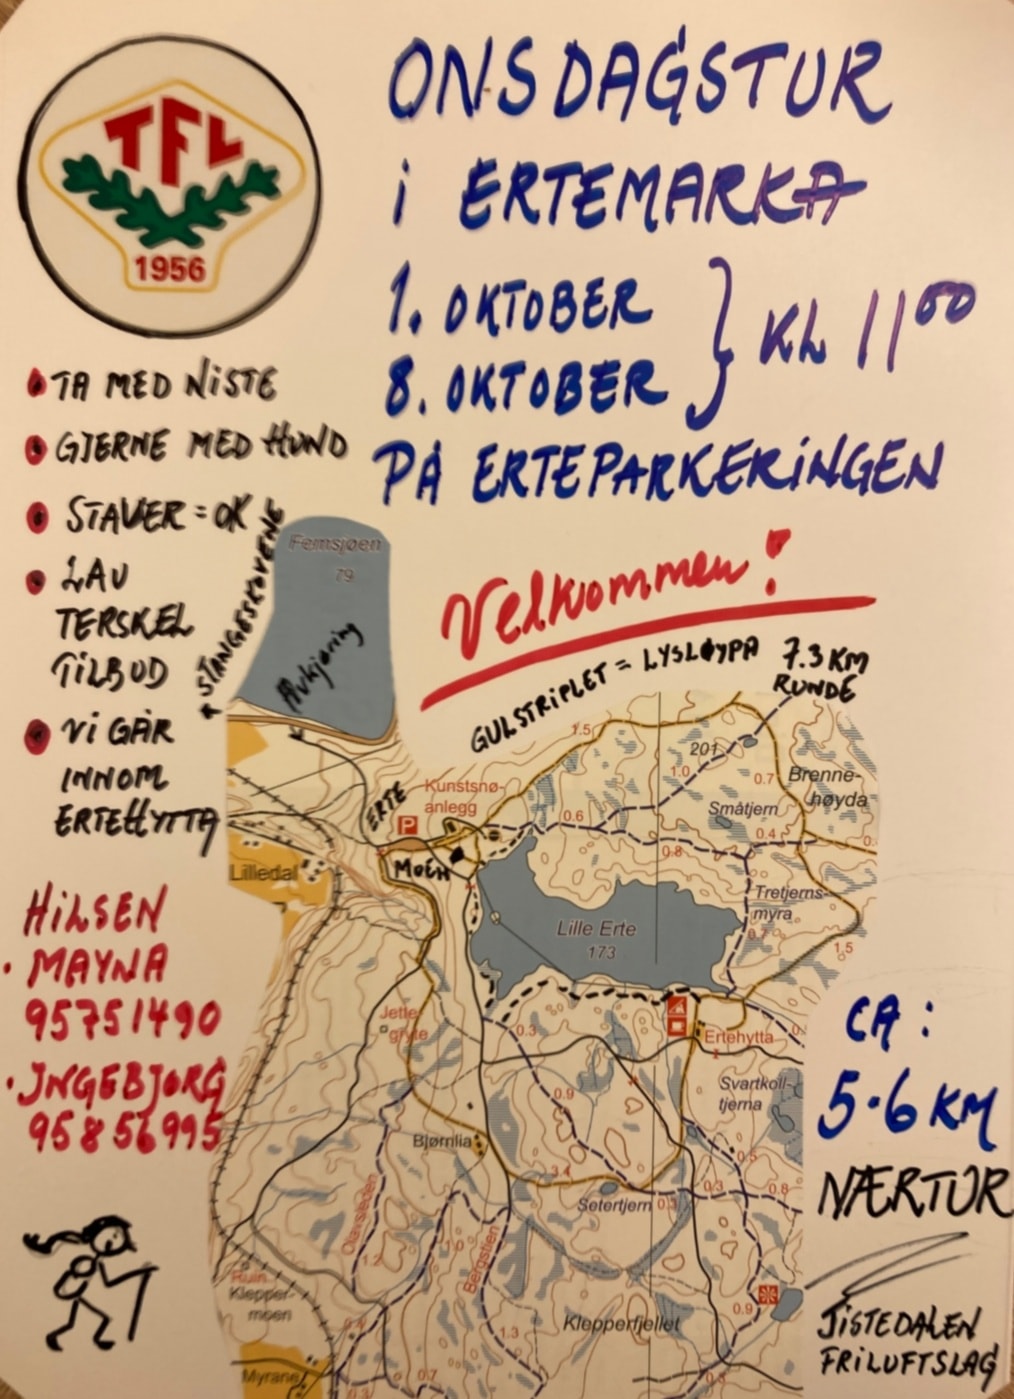 TFL
1956
ONSDAGSTUR
i ERTEMARKA
1. OKTOBER
8. OKTOBER
KL 11 00
PÅ ERTEPARKERINGEN
Velkommen!
• TA MED NISTE
• GJERNE MED HUND
• STAVER = OK
• LAV
TERSKEL
TILBUD
• Vi GÅR
INNOM
ERTEHYTTA
HILSEN
• MAYNA
95751490
• INGEBJØRG
95856995
STANGESKOVENE
Femsjøen
79
Avkjøring
GULSTRIPLET = LYSLØYPA 7.3 KM
RUNDE
1.5
201
1.0
0.7
Brenne-
høyda
Kunstsnø-
anlegg
ERTE
P
0.6
Småtjern
0.4
0.8
MOEN
Lilledal
Tretjerns-
myra
0.7
1.5
Lille Erte
173
Jetle-
gryte
0.3
Ertehytta
Svartkoll-
tjerna
0.9
Bjørnlia
3.4
0.5
0.3
0.8
Setertjern
0.3
Olavsleden
1.2
1.0
Bergstien
Ruin
Klepper-
moen
Klepperfjellet
0.9
1.3
0.4
0.7
0.3
Myrane
0.3
CA:
5-6 KM
NÆRTUR
TISTEDALEN
FRILUFTSLAG